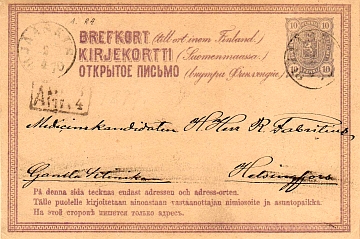 BREFKORT (till ort inom Finland.)
KIRJEKORTTI (Suomenmaassa.)
ОТКРЫТОЕ ПИСЬМО (внутри Финляндіи.)
10 10
10 10
Medicinekandidaten H Herr R. Fabritius
Gamla
Helsingfors
På denna sida tecknas endast adressen och adress-orten.
Tälle puolelle kirjoitetaan ainoastaan vastaanottajan nimi-osoite ja asuntopaikka.
На этой сторонѣ пишется только адресъ.